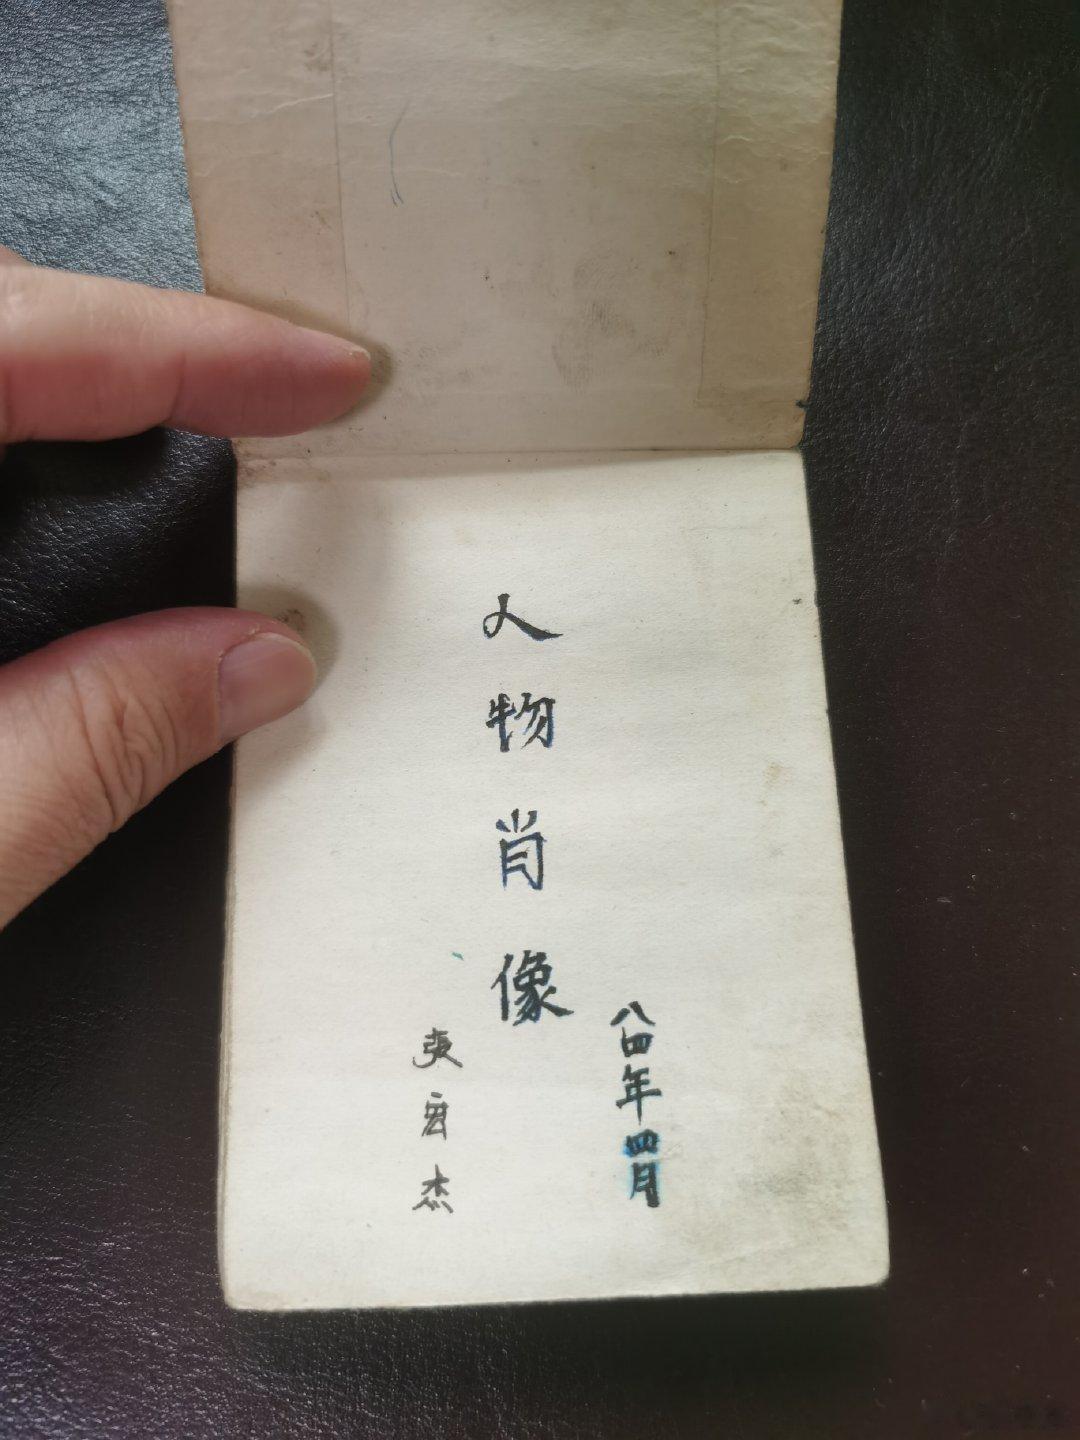 人物肖像
八四年四月
張宏杰